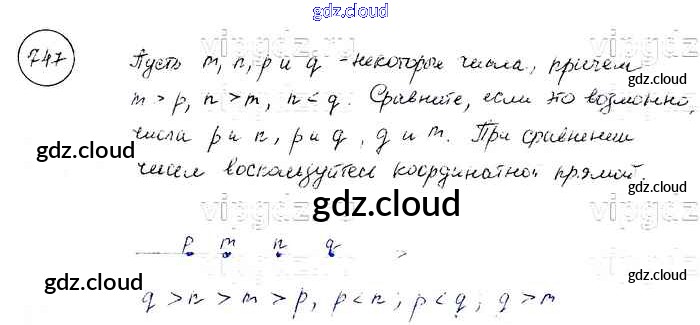 gdz.cloud
747
Пусть m, n, p и q - некоторые числа, причём
m > p, n > m, n < q. Сравните, если это возможно,
числа p и n, p и q, q и m. При сравнении
чисел воспользуйтесь координатной прямой.
gdz.cloud
gdz.cloud
gdz.cloud
gdz.cloud
gdz.cloud
p m n q
gdz.cloud
gdz.cloud
q > n > m > p, p < n; p < q; q > m